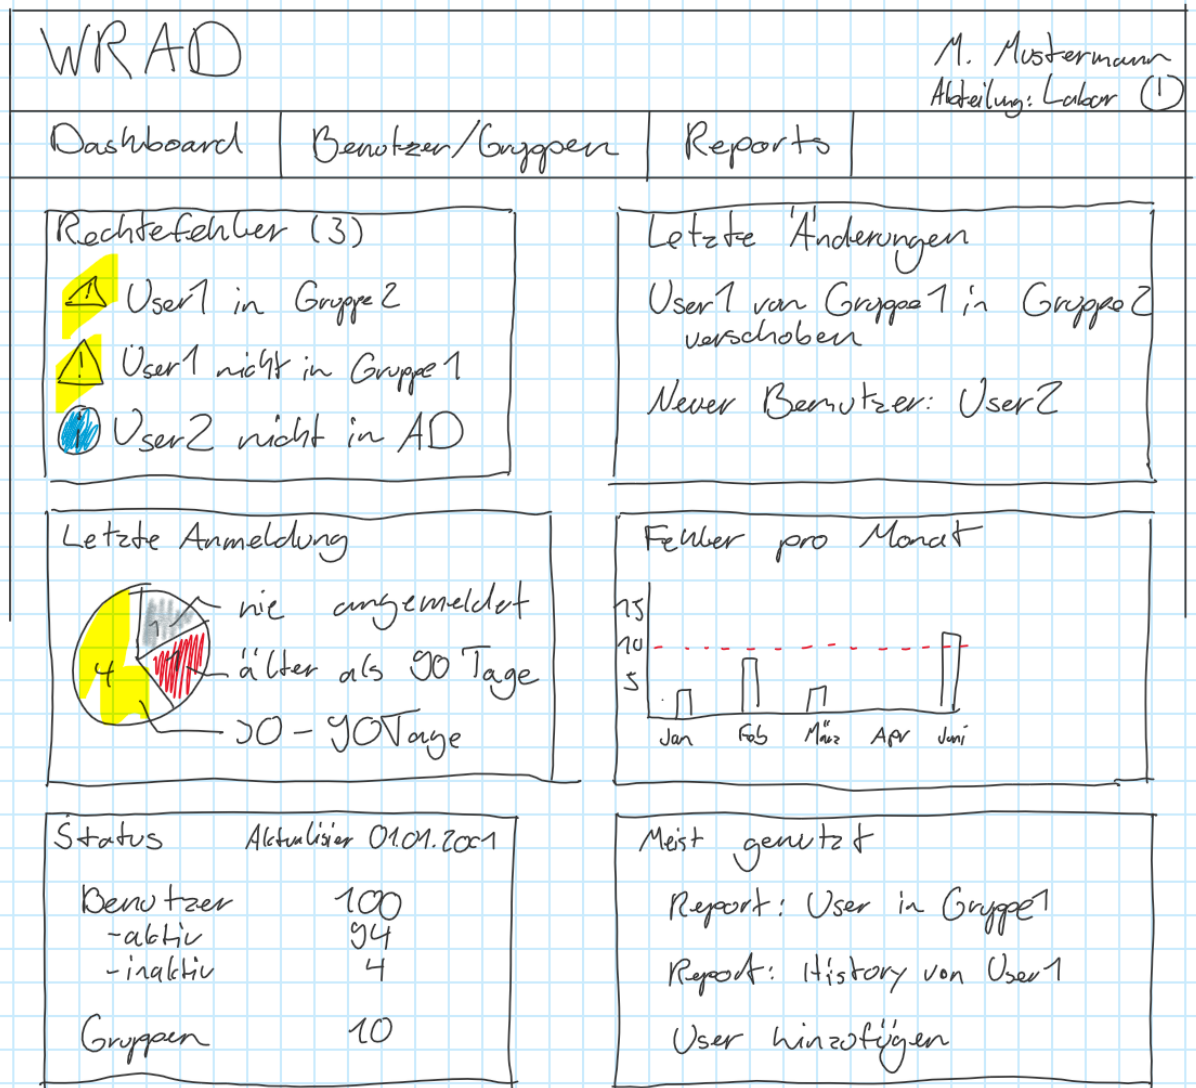 WRAD
M. Mustermann
Abteilung: Labor
Dashboard
Benutzer/Gruppen
Reports
Rechtefehler (3)
! User1 in Gruppe2
! User1 nicht in Gruppe1
i User2 nicht in AD
Letzte Änderungen
User1 von Gruppe1 in Gruppe2
verschoben
Neuer Benutzer: User2
Letzte Anmeldung
1 nie angemeldet
älter als 90 Tage
4
30-90 Tage
Fehler pro Monat
15
10
5
Jan Feb März Apr Juni
Status Aktualisier 01.01.2001
Benutzer 100
-aktiv 94
-inaktiv 4
Gruppen 10
Meist genutzt
Report: User in Gruppe1
Report: History von User1
User hinzufügen